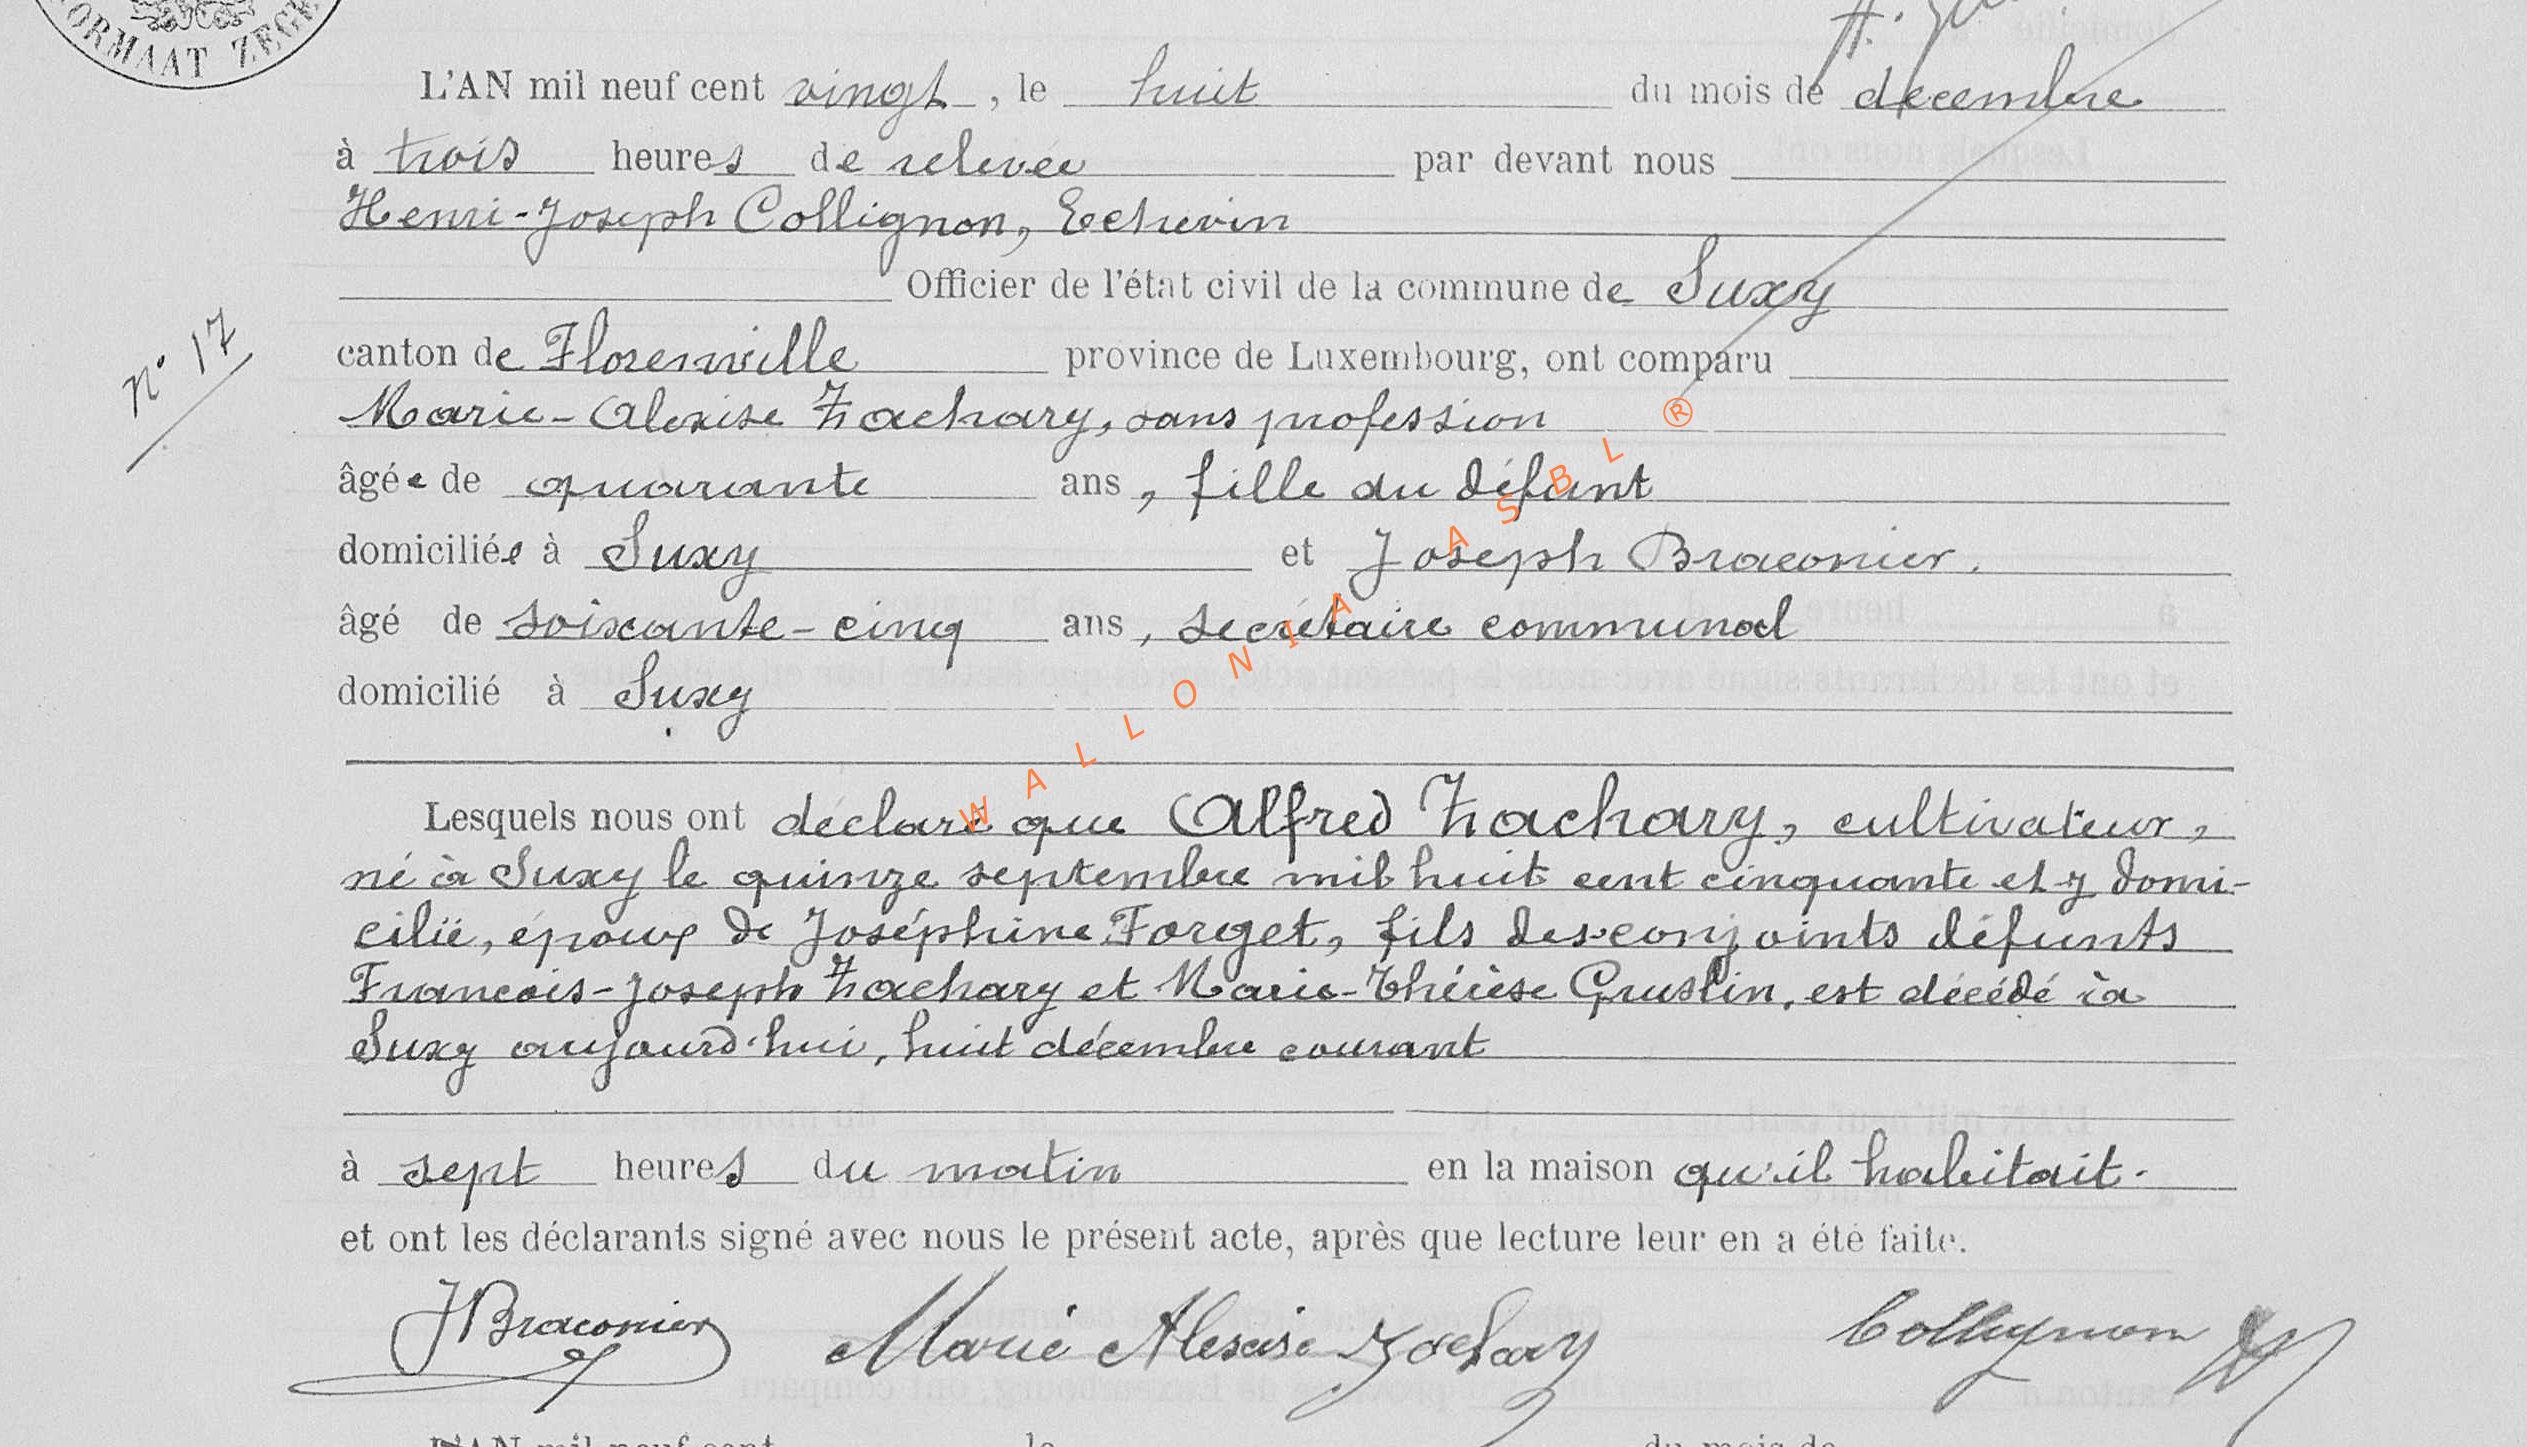 FORMAAT ZEGE
L'AN mil neuf cent vingt, le huit du mois de décembre
à trois heures de relevée par devant nous
Henri-Joseph Collignon, Echevin
Officier de l'état civil de la commune de Suxy
canton de Florenville province de Luxembourg, ont comparu
N° 17
Marie-Alexise Zachary, sans profession
âgée de quarante ans, fille du défunt
domiciliée à Suxy et Joseph Braconier.
âgé de soixante-cinq ans, secrétaire communal
domicilié à Suxy
WALLONIA ASBL ®
Lesquels nous ont déclaré que Alfred Zachary, cultivateur,
né à Suxy le quinze septembre mil huit cent cinquante et y domi-
cilié, époux de Joséphine Forget, fils des conjoints défunts
Francois-Joseph Zachary et Marie-Thérèse Gruslin, est décédé à
Suxy aujourd'hui, huit décembre courant
à sept heures du matin en la maison qu'il habitait.
et ont les déclarants signé avec nous le présent acte, après que lecture leur en a été faite.
J Braconier Marie Alexise Zachary Collignon
L'AN mil neuf cent le du mois de